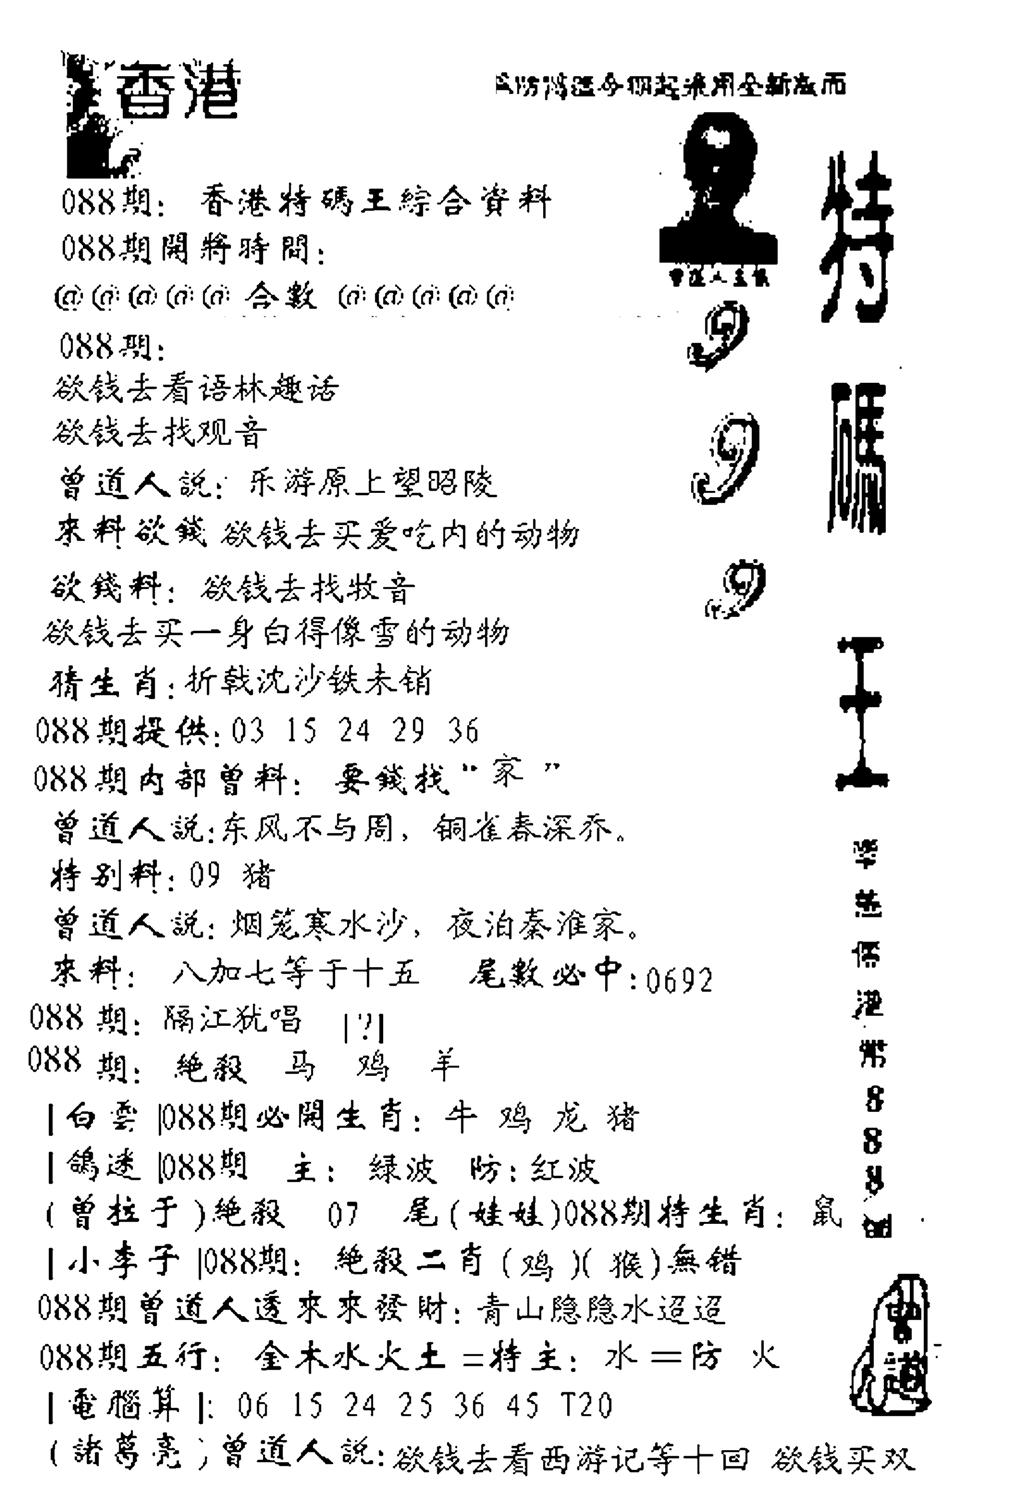 香港
防僞從今期起采用全新版面
088期: 香港特碼王綜合資料
088期開將時間:
@@@@@ 合數 @@@@@
088期:
欲钱去看语林趣话
欲钱去找观音
曾道人説: 乐游原上望昭陵
來料欲錢 欲钱去买爱吃内的动物
欲錢料: 欲钱去找牧音
欲钱去买一身白得像雪的动物
猜生肖:折戟沈沙铁未销
088期提供:03 15 24 29 36
088期内部曾料: 要錢找“家”
曾道人説:东风不与周，铜雀春深乔。
特别料:09 猪
曾道人説: 烟笼寒水沙，夜泊秦淮家。
來料: 八加七等于十五 尾數必中:0692
088期: 隔江犹唱 |?|
088期: 絶殺 马 鸡 羊
|白雲|088期必開生肖: 牛 鸡 龙 猪
|鴿迷|088期 主: 绿波 防:红波
(曾拉于)絶殺 07 尾(娃娃)088期特生肖: 鼠
|小李子|088期: 絶殺二肖(鸡)(猴)無错
088期曾道人透來來發財:青山隐隐水迢迢
088期五行: 金木水火土=特主: 水=防 火
|電腦算|: 06 15 24 25 36 45 T20
(諸葛亮)曾道人説:欲钱去看西游记等十回 欲钱买双
曾道人主筆
999
特
碼
王
港
幣
888